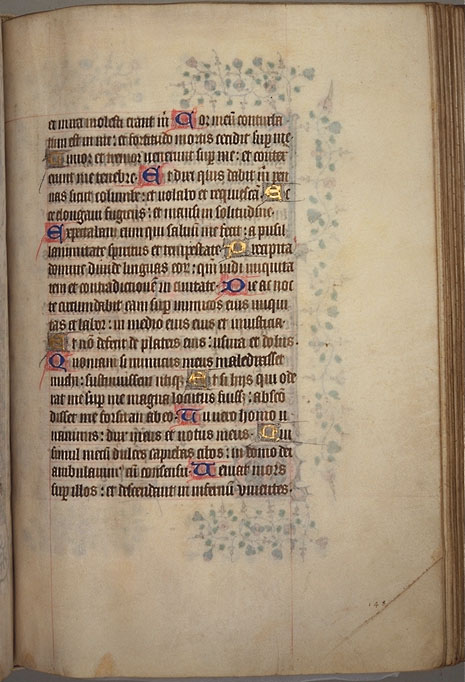 et in ira molesti erant m̄ Cor meū conturba
tum est in me: et formido mortis cecidit sup̄ me
Timor et tremor venerunt sup̄ me: et contex
erunt me tenebre. Et dixi quis dabit m̄ pen
nas sicut columbe: et volabo et requiescā. Ec
ce elongavi fugiens: et mansi in solitudine.
Expectabam eum qui salvū me fecit: a pusil
lanimitate spiritus et tempestate Precipita
domine divide linguas eorū: qm̄ vidi iniquita
tem et contradictionē in civitate. Die ac noc
te circumdabit eam sup̄ muros eius iniqui
tas et labor: in medio eius et iniusticia.
Et nō defecit de plateis eius: usura et dolus.
Quoniam si inimicus meus maledixisset
michi: sustinuissem utique. Et si hijs qui ode
rat me sup̄ me magna locutus fuiss; abscō
dissem me forsitan ab eo. Tu vero homo u
nanimis: dux meus et notus meus. Qui
simul mecū dulces capiebas cibos: in domo dei
ambulavimꝰ cū consensu. Veniat mors
sup̄ illos: et descendant in infernū viventes.